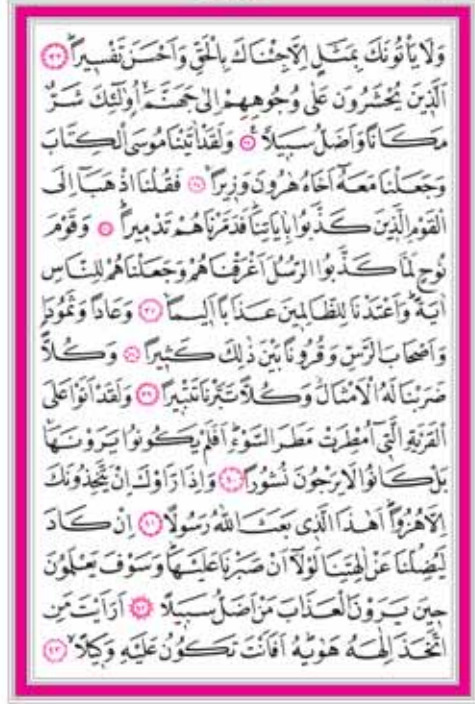 وَلَا يَأْتُونَكَ بِمَثَلٍ اِلَّا جِئْنَاكَ بِالْحَقِّ وَاَحْسَنَ تَفْسٖيراًۜ ﴿٣٣﴾
اَلَّذٖينَ يُحْشَرُونَ عَلٰى وُجُوهِهِمْ اِلٰى جَهَنَّمَۙ اُو۬لٰٓئِكَ شَرٌّ
مَكَاناً وَاَضَلُّ سَبٖيلاًࣖ ﴿٣٤﴾ وَلَقَدْ اٰتَيْنَا مُوسَى الْكِتَابَ
وَجَعَلْنَا مَعَهُٓ اَخَاهُ هٰرُونَ وَزٖيراًۚ ﴿٣٥﴾ فَقُلْنَا اذْهَبَٓا اِلَى
الْقَوْمِ الَّذٖينَ كَذَّبُوا بِاٰيَاتِنَاۜ فَدَمَّرْنَاهُمْ تَدْمٖيراًۜ ﴿٣٦﴾ وَقَوْمَ
نُوحٍ لَمَّا كَذَّبُوا الرُّسُلَ اَغْرَقْنَاهُمْ وَجَعَلْنَاهُمْ لِلنَّاسِ
اٰيَةًۜ وَاَعْتَدْنَا لِلظَّالِمٖينَ عَذَاباً اَلٖيماًۚ ﴿٣٧﴾ وَعَاداً وَثَمُودَا۬
وَاَصْحَابَ الرَّسِّ وَقُرُوناً بَيْنَ ذٰلِكَ كَثٖيراً ﴿٣٨﴾ وَكُلّاً
ضَرَبْنَا لَهُ الْاَمْثَالَۘ وَكُلّاً تَبَّرْنَا تَتْبٖيراً ﴿٣٩﴾ وَلَقَدْ اَتَوْا عَلَى
الْقَرْيَةِ الَّتٖٓي اُمْطِرَتْ مَطَرَ السَّوْءِۜ اَفَلَمْ يَكُونُوا يَرَوْنَهَاۚ
بَلْ كَانُوا لَا يَرْجُونَ نُشُوراً ﴿٤٠﴾ وَاِذَا رَاَوْكَ اِنْ يَتَّخِذُونَكَ
اِلَّا هُزُواًۜ اَهٰذَا الَّذٖي بَعَثَ اللّٰهُ رَسُولاً ﴿٤١﴾ اِنْ كَادَ
لَيُضِلُّنَا عَنْ اٰلِهَتِنَا لَوْلَٓا اَنْ صَبَرْنَا عَلَيْهَاۜ وَسَوْفَ يَعْلَمُونَ
حٖينَ يَرَوْنَ الْعَذَابَ مَنْ اَضَلُّ سَبٖيلاً ﴿٤٢﴾ اَرَاَيْتَ مَنِ
اتَّخَذَ اِلٰهَهُ هَوٰيهُۜ اَفَاَنْتَ تَكُونُ عَلَيْهِ وَكٖيلاًۙ ﴿٤٣﴾